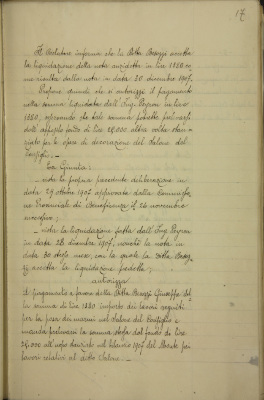 17
Il Relatore informa che la Ditta Bogozzi accetta
la liquidazione della nota anzidetta in lire 1880 co=
me risulta dalla nota in data 30 dicembre 1907.
Propone quindi che si autorizzi il pagamento
della somma liquidata dall'Ing. Pizzoni in lire
1880, operando che tale somma potrebbe prelevarsi
dall'apposito fondo di lire 25,000 altra volta stan=
ziato per le opere di decorazione del Salone del
Consiglio.
La Giunta:
- vista la propria precedente deliberazione in
data 29 Ottobre 1907 approvata dalla Commissio=
ne Provinciale di Beneficenza il 26 novembre
successivo;
- vista la liquidazione fatta dall'Ing. Pizzoni
in data 28 dicembre 1907, nonchè la nota in
data 30 stesso mese, con la quale la Ditta
accetta la liquidazione predetta;
autorizza
il pagamento a favore della Ditta Giuseppe del=
la somma di lire 1880 importo dei lavori eseguiti
per la posa dei marmi nel Salone del Consiglio e
manda prelevarsi la somma stessa dal fondo di lire
25,000 all'uopo stanziato nel bilancio 1907 del per
lavori relativi al detto Salone.